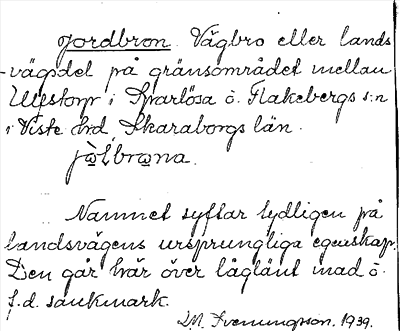 Jordbron. Vägbro eller lands
-vägsdel på gränsområdet mellan
Ulfstorp i Sparlösa o. Flakebergs s:n
i Viste hrd, Skaraborgs län.
Namnet syftar tydligen på
landsvägens ursprungliga egenskap.
Den går här över låglänt mad o.
f.d. sankmark.
M. Svenungsson. 1939.